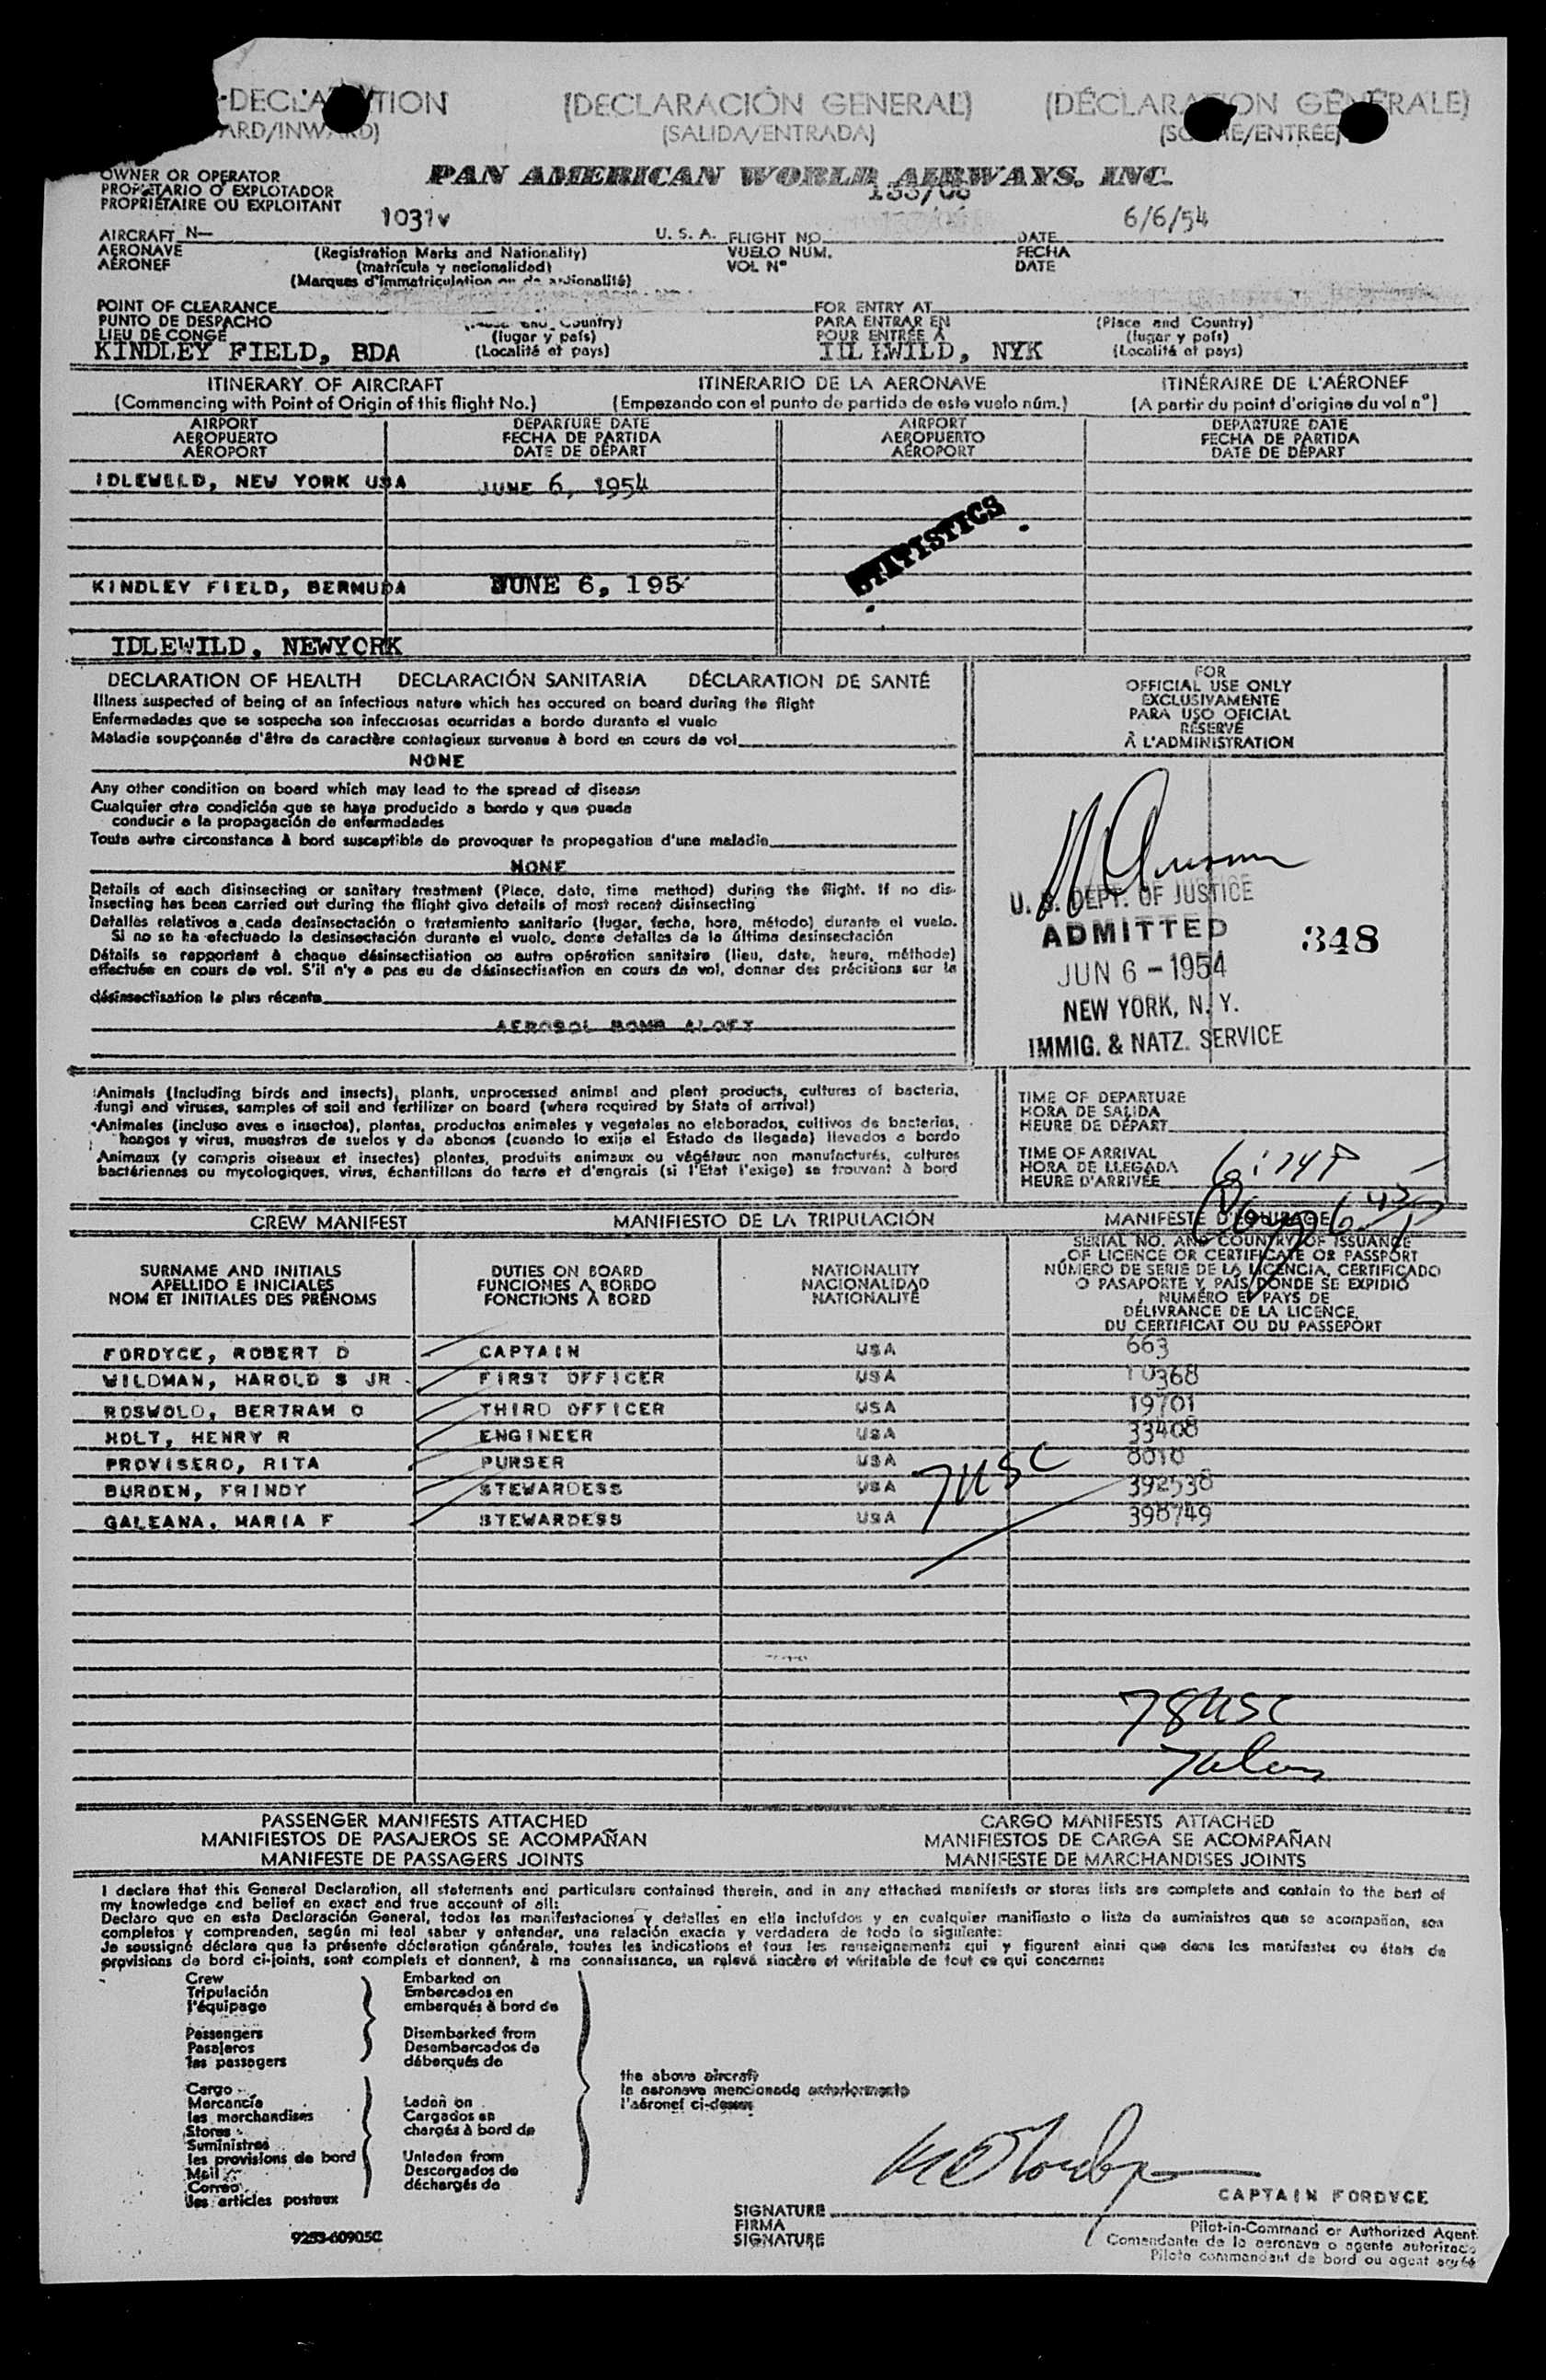 (DECLARACIÓN GENERAL)
(SALIDA/ENTRADA)
OWNER OR OPERATOR
PROPIETARIO O EXPLOTADOR
PROPRIÉTAIRE OU EXPLOITANT
PAN AMERICAN WORLD AIRWAYS, INC.
AIRCRAFT N— 1031V U. S. A. FLIGHT NO. DATE 6/6/54
AERONAVE (Registration Marks and Nationality) VUELO NUM. FECHA
AÉRONEF (matrícula y nacionalidad) VOL Nº DATE
(Marques d'immatriculation
POINT OF CLEARANCE FOR ENTRY AT
PUNTO DE DESPACHO PARA ENTRAR EN (Place and Country)
LIEU DE CONGÉ (lugar y país) POUR ENTRÉE À (lugar y país)
KINDLEY FIELD, BDA (Localité et pays) NYK (Localité et pays)
ITINERARY OF AIRCRAFT ITINERARIO DE LA AERONAVE ITINÉRAIRE DE L'AÉRONEF
(Commencing with Point of Origin of this flight No.) (Empezando con el punto de partida de este vuelo núm.) (A partir du point d'origine du vol nº)
AIRPORT DEPARTURE DATE AIRPORT DEPARTURE DATE
AEROPUERTO FECHA DE PARTIDA AEROPUERTO FECHA DE PARTIDA
AÉROPORT DATE DE DÉPART AÉROPORT DATE DE DÉPART
IDLEWILD, NEW YORK USA JUNE 6, 1954
STATISTICS
KINDLEY FIELD, BERMUDA JUNE 6, 195
IDLEWILD, NEWYORK
DECLARATION OF HEALTH DECLARACIÓN SANITARIA DÉCLARATION DE SANTÉ
Illness suspected of being of an infectious nature which has occured on board during the flight
Enfermedades que se sospecha son infecciosas ocurridas a bordo durante el vuelo
Maladie soupçonnée d'être de caractère contagieux survenue à bord en cours de vol
NONE
Any other condition on board which may lead to the spread of disease
Cualquier otra condición que se haya producido a bordo y que pueda
conducir a la propagación de enfermedades
Toute autre circonstance à bord susceptible de provoquer la propagation d'une maladie
NONE
Details of each disinsecting or sanitary treatment (Place, date, time method) during the flight. If no dis-
insecting has been carried out during the flight give details of most recent disinsecting
Detalles relativos a cada desinsectación o tratamiento sanitario (lugar, fecha, hora, método) durante el vuelo.
Si no se ha efectuado la desinsectación durante el vuelo, dense detalles de la última desinsectación
Détails se rapportant à chaque désinsectisation ou autre opération sanitaire (lieu, date, heure, méthode)
effectuée en cours de vol. S'il n'y a pas eu de désinsectisation en cours de vol, donner des précisions sur la
désinsectisation la plus récente
AEROSOL BOMB ALOFT
FOR
OFFICIAL USE ONLY
EXCLUSIVAMENTE
PARA USO OFICIAL
RÉSERVÉ
À L'ADMINISTRATION
U. S. DEPT. OF JUSTICE
ADMITTED
348
JUN 6 - 1954
NEW YORK, N. Y.
IMMIG. & NATZ. SERVICE
Animals (Including birds and insects), plants, unprocessed animal and plant products, cultures of bacteria,
fungi and viruses, samples of soil and fertilizer on board (where required by State of arrival)
Animales (incluso aves e insectos), plantas, productos animales y vegetales no elaborados, cultivos de bacterias,
hongos y virus, muestras de suelos y de abonos (cuando lo exija el Estado de llegada) llevados a bordo
Animaux (y compris oiseaux et insectes) plantes, produits animaux ou végétaux non manufacturés, cultures
bactériennes ou mycologiques, virus, échantillons de terre et d'engrais (si l'État l'exige) se trouvant à bord
TIME OF DEPARTURE
HORA DE SALIDA
HEURE DE DÉPART
TIME OF ARRIVAL
HORA DE LLEGADA
HEURE D'ARRIVÉE
CREW MANIFEST MANIFIESTO DE LA TRIPULACIÓN MANIFESTE D'ÉQUIPAGE
SERIAL NO. AND COUNTRY OF ISSUANCE
OF LICENCE OR CERTIFICATE OR PASSPORT
SURNAME AND INITIALS DUTIES ON BOARD NATIONALITY NÚMERO DE SERIE DE LA LICENCIA, CERTIFICADO
APELLIDO E INICIALES FUNCIONES A BORDO NACIONALIDAD O PASAPORTE Y PAÍS DONDE SE EXPIDIÓ
NOM ET INITIALES DES PRÉNOMS FONCTIONS À BORD NATIONALITÉ NUMÉRO ET PAYS DE
DÉLIVRANCE DE LA LICENCE,
DU CERTIFICAT OU DU PASSEPORT
FORDYCE, ROBERT D CAPTAIN USA 663
WILDMAN, HAROLD S JR FIRST OFFICER USA 10368
ROSWOLD, BERTRAM O THIRD OFFICER USA 19701
HOLT, HENRY R ENGINEER USA 33408
PROVISERO, RITA PURSER USA 8010
BURDEN, FRINDY STEWARDESS USA 392538
7USC
GALEANA, MARIA F STEWARDESS USA 398749
78USC
PASSENGER MANIFESTS ATTACHED CARGO MANIFESTS ATTACHED
MANIFIESTOS DE PASAJEROS SE ACOMPAÑAN MANIFIESTOS DE CARGA SE ACOMPAÑAN
MANIFESTE DE PASSAGERS JOINTS MANIFESTE DE MARCHANDISES JOINTS
I declare that this General Declaration, all statements and particulars contained therein, and in any attached manifests or stores lists are complete and contain to the best of
my knowledge and belief an exact and true account of all:
Declaro que en esta Declaración General, todas las manifestaciones y detalles en ella incluídos y en cualquier manifiesto o lista de suministros que se acompañan, son
completos y comprenden, según mi leal saber y entender, una relación exacta y verdadera de todo lo siguiente:
Je soussigné déclare que la présente déclaration générale, toutes les indications et tous les renseignements qui y figurent ainsi que dans les manifestes ou états de
provisions de bord ci-joints, sont complets et donnent, à ma connaissance, un relevé sincère et véritable de tout ce qui concerne:
Crew Embarked on
Tripulación Embarcados en
l'équipage embarqués à bord de
Passengers Disembarked from
Pasajeros Desembarcados de
les passagers débarqués de
the above aircraft
la aeronave mencionada anteriormente
l'aéronef ci-dessus
Cargo
Mercancía Laden on
les marchandises Cargados en
Stores chargés à bord de
Suministros
les provisions de bord Unladen from
Mail Descargados de
Correo déchargés de
les articles postaux
CAPTAIN FORDYCE
SIGNATURE
FIRMA
SIGNATURE
Pilot-in-Command or Authorized Agent
Comandante de la aeronave o agente autorizado
Pilote commandant de bord ou agent agréé
9253-60905C